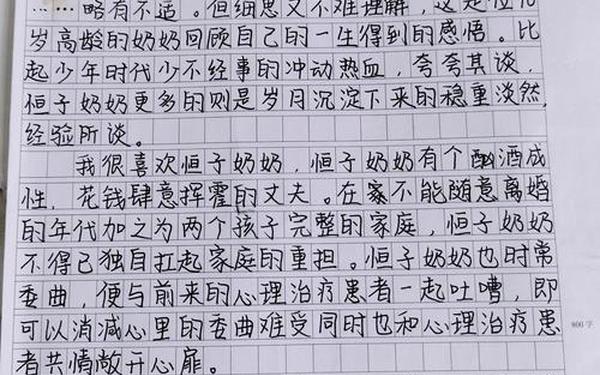 略有不适。但细思又不难理解，这是位
岁高龄的奶奶回顾自己的一生得到的感悟。比
起少年时代少不经事的冲动热血，夸夸其谈，
恒子奶奶更多的则是岁月沉淀下来的稳重淡然，
经验所谈。
我很喜欢恒子奶奶，恒子奶奶有个酗酒成
性，花钱肆意挥霍的丈夫。在家不能随意离婚
的年代加之为两个孩子完整的家庭，恒子奶奶
不得已独自扛起家庭的重担。恒子奶奶也时常
委曲，便与前来的心理治疗患者一起吐嘈，即
可以消减心里的委曲难受同时也和心理治疗患
者共情敞开心扉。
800字